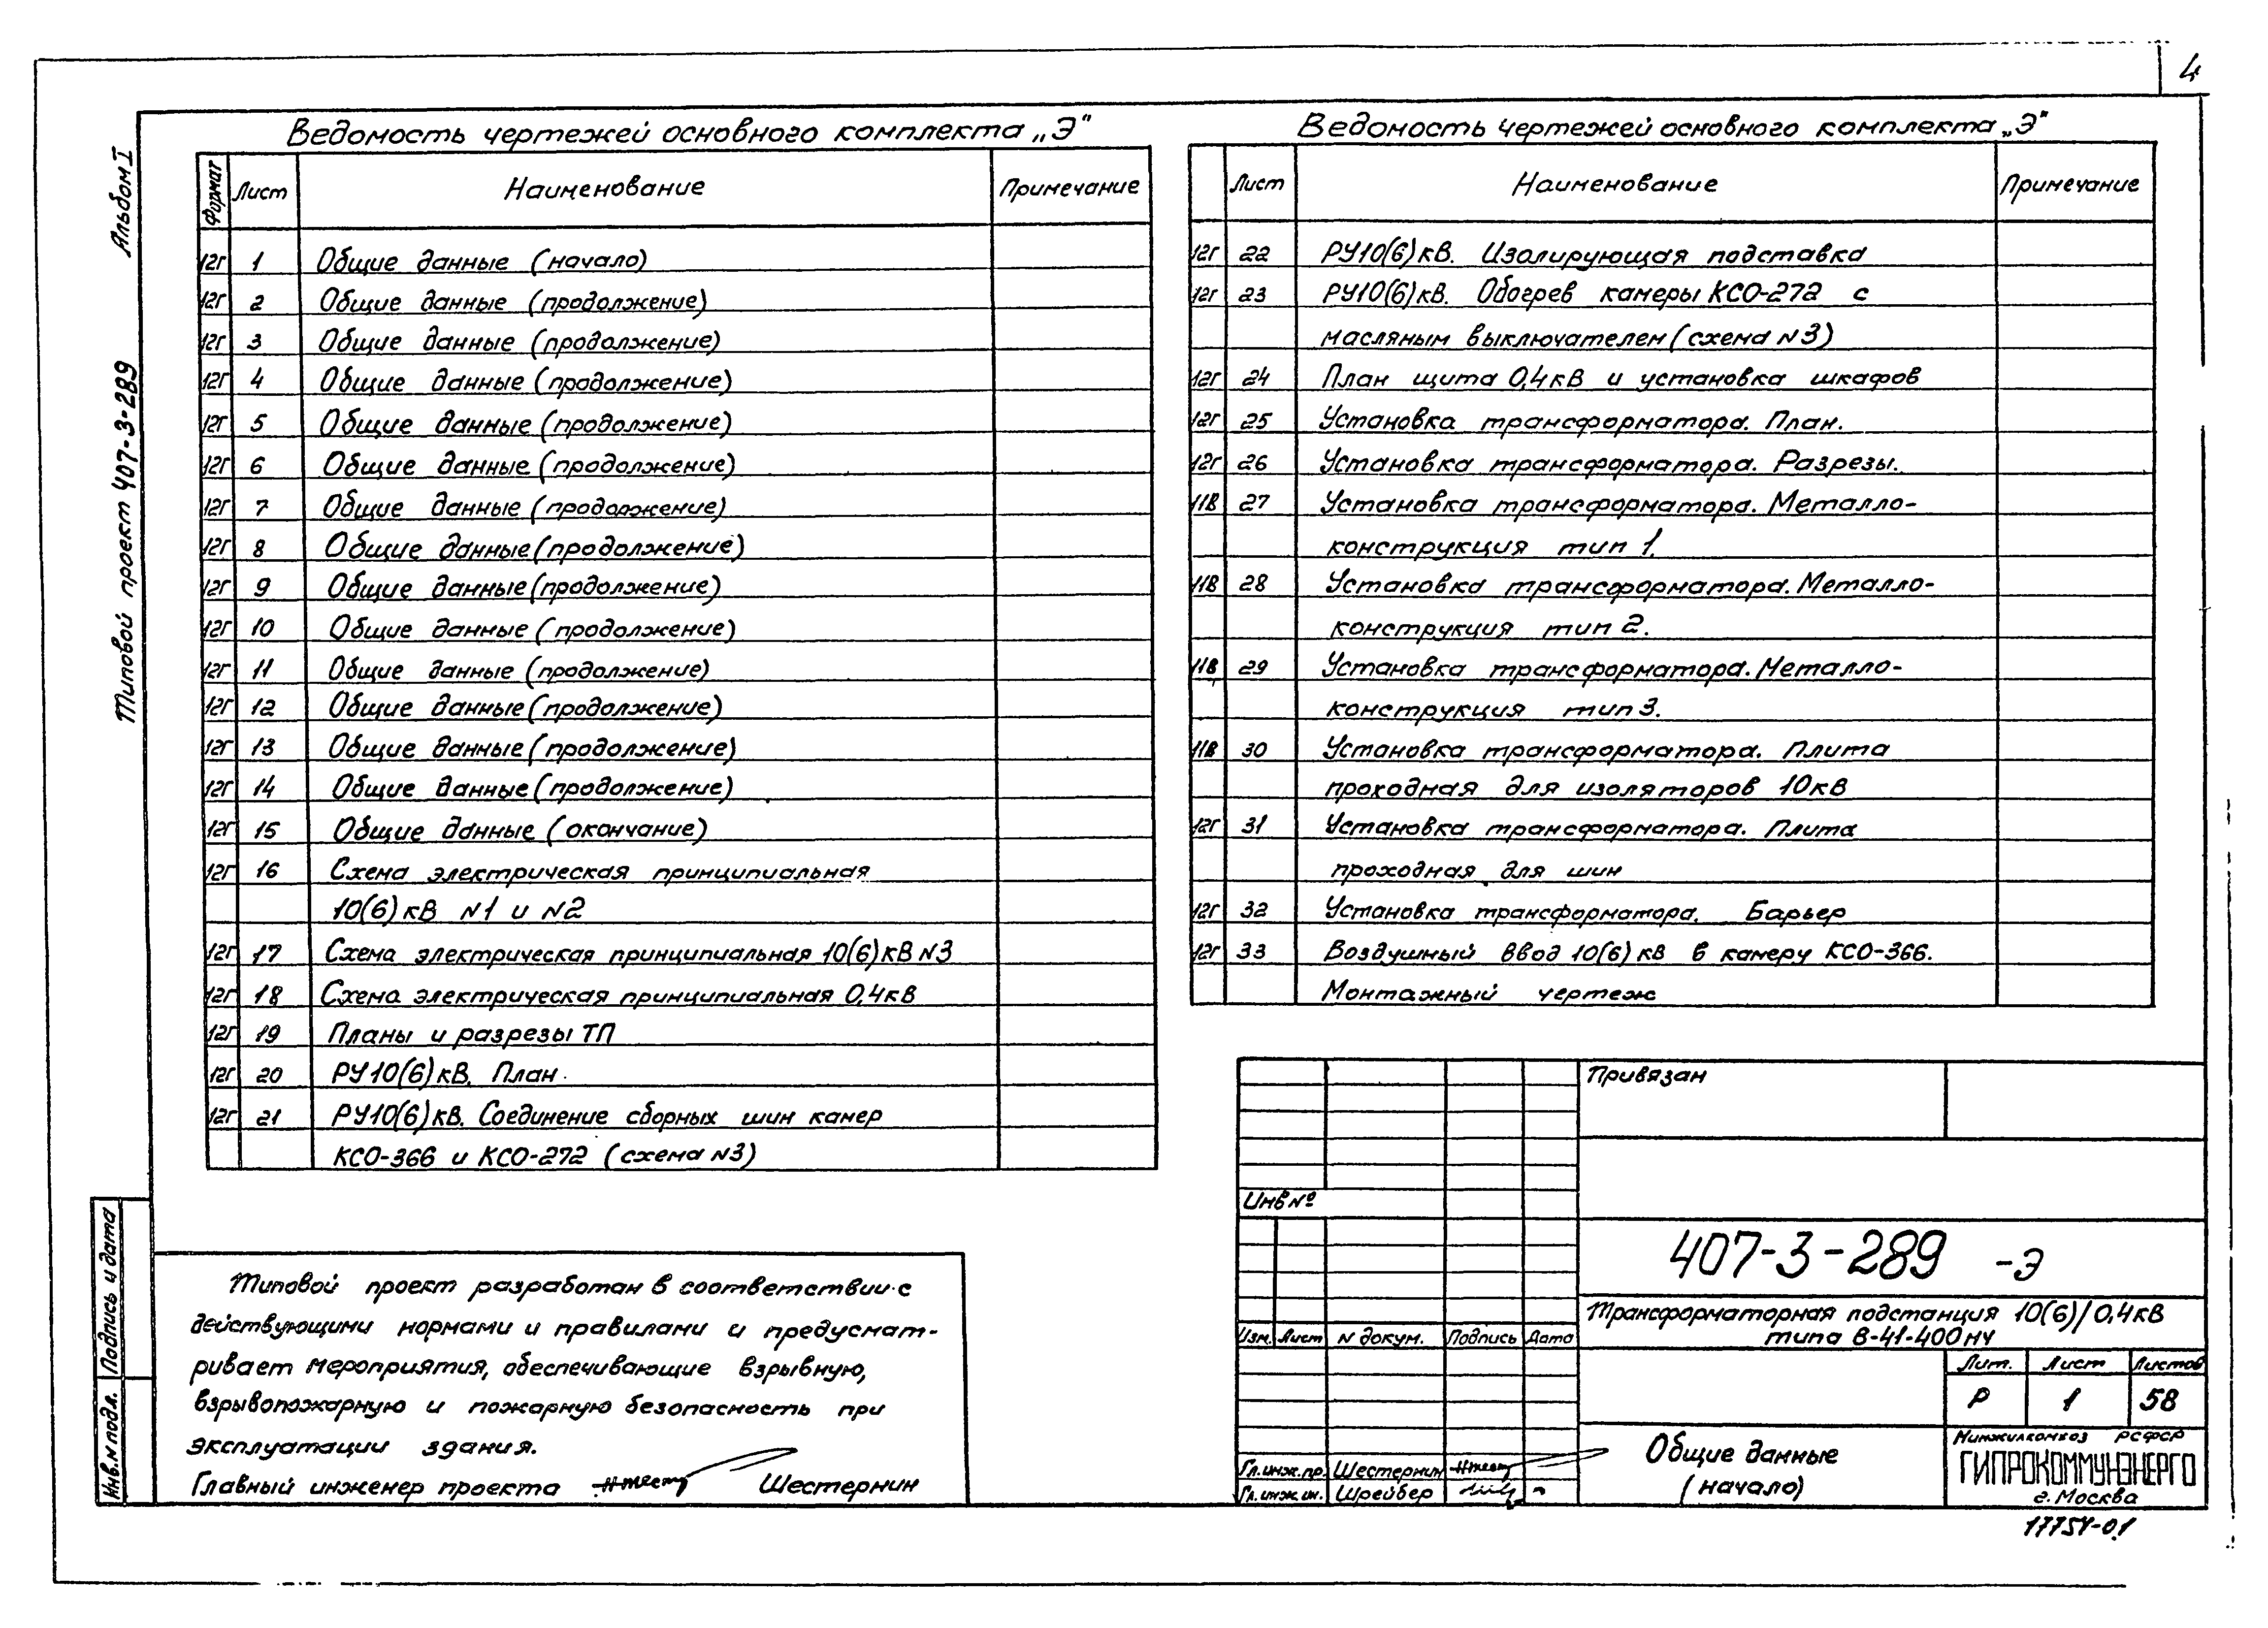 4
Альбом I
Типовой проект 407-3-289
Ведомость чертежей основного комплекта „Э"
Формат Лист Наименование Примечание
12Г 1 Общие данные (начало)
12Г 2 Общие данные (продолжение)
12Г 3 Общие данные (продолжение)
12Г 4 Общие данные (продолжение)
12Г 5 Общие данные (продолжение)
12Г 6 Общие данные (продолжение)
12Г 7 Общие данные (продолжение)
12Г 8 Общие данные (продолжение)
12Г 9 Общие данные (продолжение)
12Г 10 Общие данные (продолжение)
12Г 11 Общие данные (продолжение)
12Г 12 Общие данные (продолжение)
12Г 13 Общие данные (продолжение)
12Г 14 Общие данные (продолжение)
12Г 15 Общие данные (окончание)
12Г 16 Схема электрическая принципиальная
10(6)кВ N1 и N2
12Г 17 Схема электрическая принципиальная 10(6)кВ N3
12Г 18 Схема электрическая принципиальная 0,4кВ
12Г 19 Планы и разрезы ТП
12Г 20 РУ10(6)кВ. План.
12Г 21 РУ10(6)кВ. Соединение сборных шин камер
КСО-366 и КСО-272 (схема N3)
Ведомость чертежей основного комплекта „Э"
Лист Наименование Примечание
12Г 22 РУ10(6)кВ. Изолирующая подставка
12Г 23 РУ10(6)кВ. Обогрев камеры КСО-272 с
масляным выключателем (схема N3)
12Г 24 План щита 0,4кВ и установка шкафов
12Г 25 Установка трансформатора. План.
12Г 26 Установка трансформатора. Разрезы.
11В 27 Установка трансформатора. Металло-
конструкция тип 1.
11В 28 Установка трансформатора. Металло-
конструкция тип 2.
11В 29 Установка трансформатора. Металло-
конструкция тип 3.
11В 30 Установка трансформатора. Плита
проходная для изоляторов 10кВ
12Г 31 Установка трансформатора. Плита
проходная для шин
12Г 32 Установка трансформатора. Барьер
12Г 33 Воздушный ввод 10(6)кВ в камеру КСО-366.
Монтажный чертеж
Типовой проект разработан в соответствии с
действующими нормами и правилами и предусмат-
ривает мероприятия, обеспечивающие взрывную,
взрывопожарную и пожарную безопасность при
эксплуатации здания.
Главный инженер проекта Шестернин
Подпись и дата
Инв.N подл.
Привязан
Инв №
407-3-289 -Э
Трансформаторная подстанция 10(6)/0,4кВ
типа В-41-400МУ
Изм. Лист N докум. Подпись Дата
Лит. Лист Листов
Р 1 58
Общие данные
(начало)
Гл.инж.пр. Шестернин
Гл.инж.ин. Шрейбер
Минжилкомхоз РСФСР
ГИПРОКОММУНЭНЕРГО
г. Москва
17754-01